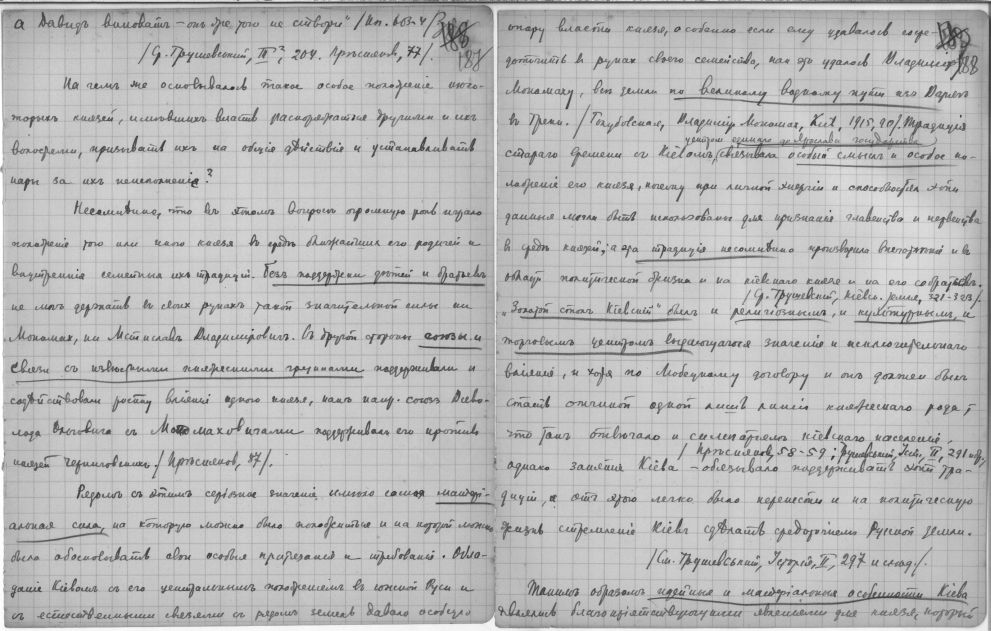 а Давидъ виноватъ – онъ же того не створи" /Ип. 603-4/
188
187
/Ср. Грушевскій, II², 204. Прѣсняков, 77/.
На чемъ же основывалось такое особое положеніе нѣко-
торыхъ князей, имѣвшихъ власть распоряжаться другими и ихъ
волостями, призывать ихъ на общія дѣйствія и устанавливать
кары за ихъ неисполненіе?
Несомнѣнно, что въ этомъ вопросѣ огромную роль играло
положеніе того или иного князя въ средѣ ближайшихъ его родичей и
внутреннія семейныя ихъ традиціи. Безъ поддержки дѣтей и братьевъ
не могъ держать въ своихъ рукахъ такой значительной силы ни
Мономахъ, ни Мстиславъ Владиміровичъ. Съ другой стороны союзы и
связи съ извѣстными княжескими группами поддерживали и
содѣйствовали росту вліянія одного князя, какъ напр. союзъ Всево-
лода Ольговича съ Мономаховичами поддерживалъ его противъ
князей Черниговскихъ. /Прѣсняков, 87/.
Рядомъ съ этимъ серьезное значеніе имѣла самая матері-
альная сила, на которую можно было положиться и на которой можно
было обосновывать свои особыя притязанія и требованія. Обла-
даніе Кіевомъ съ его центральнымъ положеніемъ въ южной Руси и
съ естественными связями съ рядомъ земель давало особую
188
опору власти князя, особенно если ему удавалось сосре-
доточить въ рукахъ своего семейства, какъ это удалось Владиміру
Мономаху, всѣ земли по великому водному пути изъ Варягъ
въ Греки. /Голубовская, Владиміръ Мономахъ, Кіевъ, 1915, 20/. Традиція
центромъ единаго до Ярослава государства
стараго времени съ Кіевомъ, связывала особый смыслъ и особое по-
ложеніе его князя, почему при личной энергіи и способностяхъ эти
данныя могли быть использованы для признанія главенства и первенства
въ средѣ князей; а эта традиція несомнѣнно производила впечатлѣніе и въ
области политической жизни и на кіевскаго князя и на его собратьевъ.
/Ср. Грушевскій, Кіевск. земля, 321-323/.
„Золотой столъ Кіевскій" былъ и религіознымъ, и культурнымъ, и
торговымъ центромъ выдающагося значенія и исключительнаго
вліянія, и хотя по Любецкому договору и онъ долженъ былъ
стать отчиной одной лишь линіи княжескаго рода,
что тамъ отвѣчало и симпатіямъ кіевскаго населенія,
/Прѣсняков, 58-59; Грушевський, Іст., II, 291 и др./
однако занятіе Кіева – обязывало поддерживать эти тра-
диціи, а отъ этого легко было перенести и на политическую
жизнь стремленіе Кіевъ сдѣлать средоточіемъ Русской Земли.
/См. Грушевський, Історія, II, 297 и слѣд./.
Такимъ образомъ идейныя и матеріальныя особенности Кіева
являлись благопріятствующими явленіями для князя, который